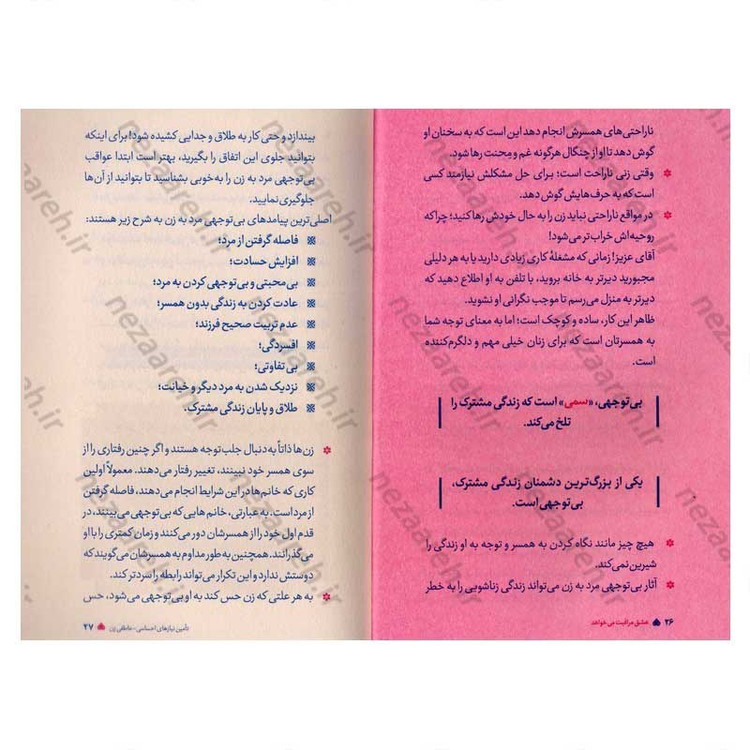 ناراحتی‌های همسرش انجام دهد این است که به سخنان او
گوش دهد تا او از چنگال هرگونه غم و محِنت رها شود.
وقتی زنی ناراحت است؛ برای حل مشکلش نیازمند کسی
است که به حرف‌هایش گوش دهد.
در مواقع ناراحتی نباید زن را به حال خودش رها کنید؛ چراکه
روحیه‌اش خراب‌تر می‌شود!
آقای عزیز! زمانی که مشغلهٔ کاری زیادی دارید یا به هر دلیلی
مجبورید دیرتر به خانه بروید، با تلفن به او اطلاع دهید که
دیرتر به منزل می‌رسم تا موجب نگرانی او نشوید.
ظاهر این کار، ساده و کوچک است؛ اما به معنای توجه شما
به همسرتان است که برای زنان خیلی مهم و دلگرم‌کننده
است.
بی‌توجهی، «سمی» است که زندگی مشترک را
تلخ می‌کند.
یکی از بزرگ‌ترین دشمنان زندگی مشترک،
بی‌توجهی است.
هیچ چیز مانند نگاه کردن به همسر و توجه به او زندگی را
شیرین نمی‌کند.
آثار بی‌توجهی مرد به زن می‌تواند زندگی زناشویی را به خطر
۲۶ عشق مراقبت می‌خواهد
بیندازد و حتی کار به طلاق و جدایی کشیده شود! برای اینکه
بتوانید جلوی این اتفاق را بگیرید، بهتر است ابتدا عواقب
بی‌توجهی مرد به زن را به‌خوبی بشناسید تا بتوانید از آن‌ها
جلوگیری نمایید.
اصلی‌ترین پیامدهای بی‌توجهی مرد به زن به شرح زیر هستند:
فاصله گرفتن از مرد؛
افزایش حسادت؛
بی‌محبتی و بی‌توجهی کردن به مرد؛
عادت کردن به زندگی بدون همسر؛
عدم تربیت صحیح فرزند؛
افسردگی؛
بی‌تفاوتی؛
نزدیک شدن به مرد دیگر و خیانت؛
طلاق و پایان زندگی مشترک.
زن‌ها ذاتاً به‌دنبال جلب‌توجه هستند و اگر چنین رفتاری را از
سوی همسر خود نبینند، تغییر رفتار می‌دهند. معمولاً اولین
کاری که خانم‌ها در این شرایط انجام می‌دهند، فاصله گرفتن
از مرد است. به عبارتی، خانم‌هایی که بی‌توجهی می‌بینند، در
قدم اول خود را از همسرشان دور می‌کنند و زمان کمتری را با او
می‌گذرانند. همچنین به‌طور مداوم به همسرشان می‌گویند که
دوستش ندارد و این تکرار می‌تواند رابطه را سردتر کند.
به هر علتی که زن حس کند به او بی‌توجهی می‌شود، حس
تأمین نیازهای احساسی-عاطفی زن ۲۷
nezaareh.ir